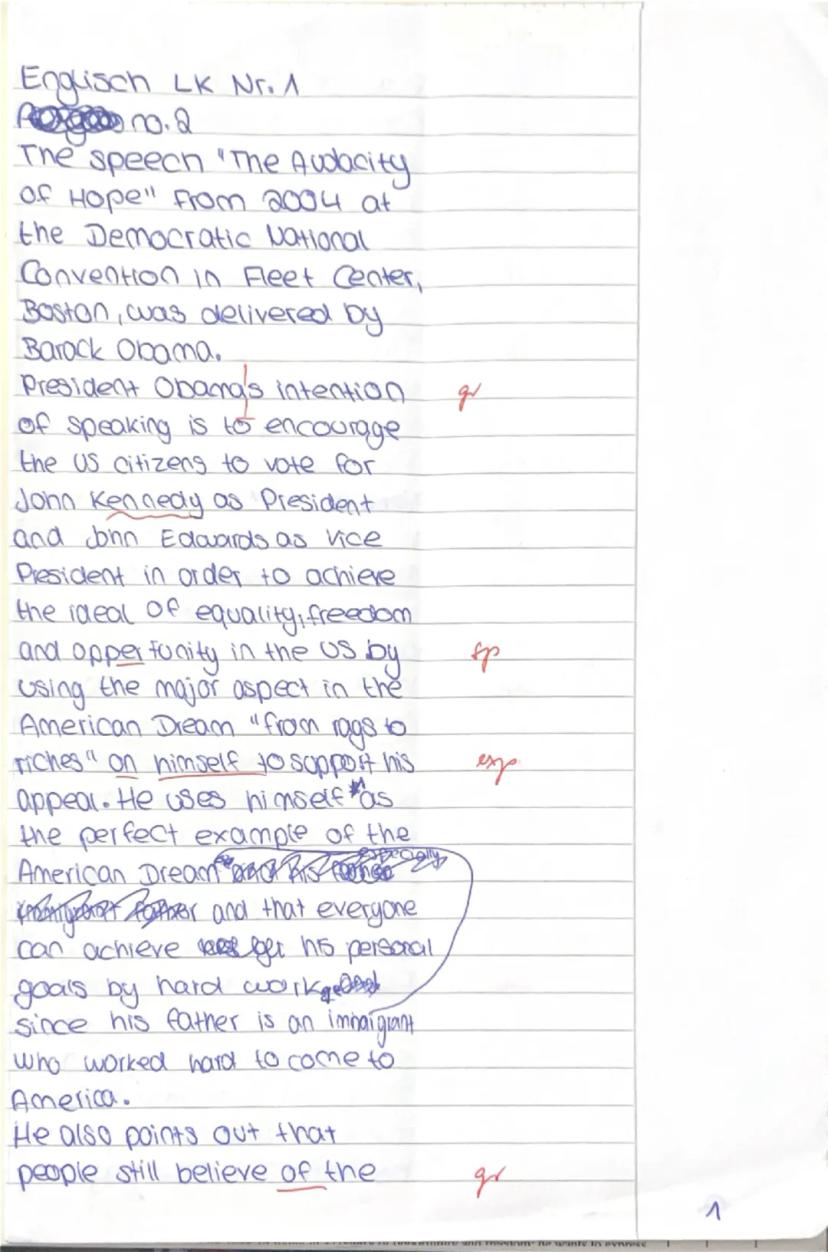 Englisch LK Nr. 1
no. 2
The speech "The Audacity
of Hope" from 2004 at
the Democratic National
Convention in Fleet Center,
Boston, was delivered by
Barack Obama.
President Obama's intention gr
of speaking is to encourage
the US citizens to vote for
John Kennedy as President
and John Edwards as Vice
President in order to achieve
the ideal of equality, freedom
and oppertunity in the US by sp
using the major aspect in the
American Dream "from rags to
riches" on himself to support his exp
appeal. He uses himself as
the perfect example of the
American Dream especially
and that everyone
can achieve his personal
goals by hard work
since his father is an immigrant
who worked hard to come to
America.
He also points out that
people still believe of the gr
1